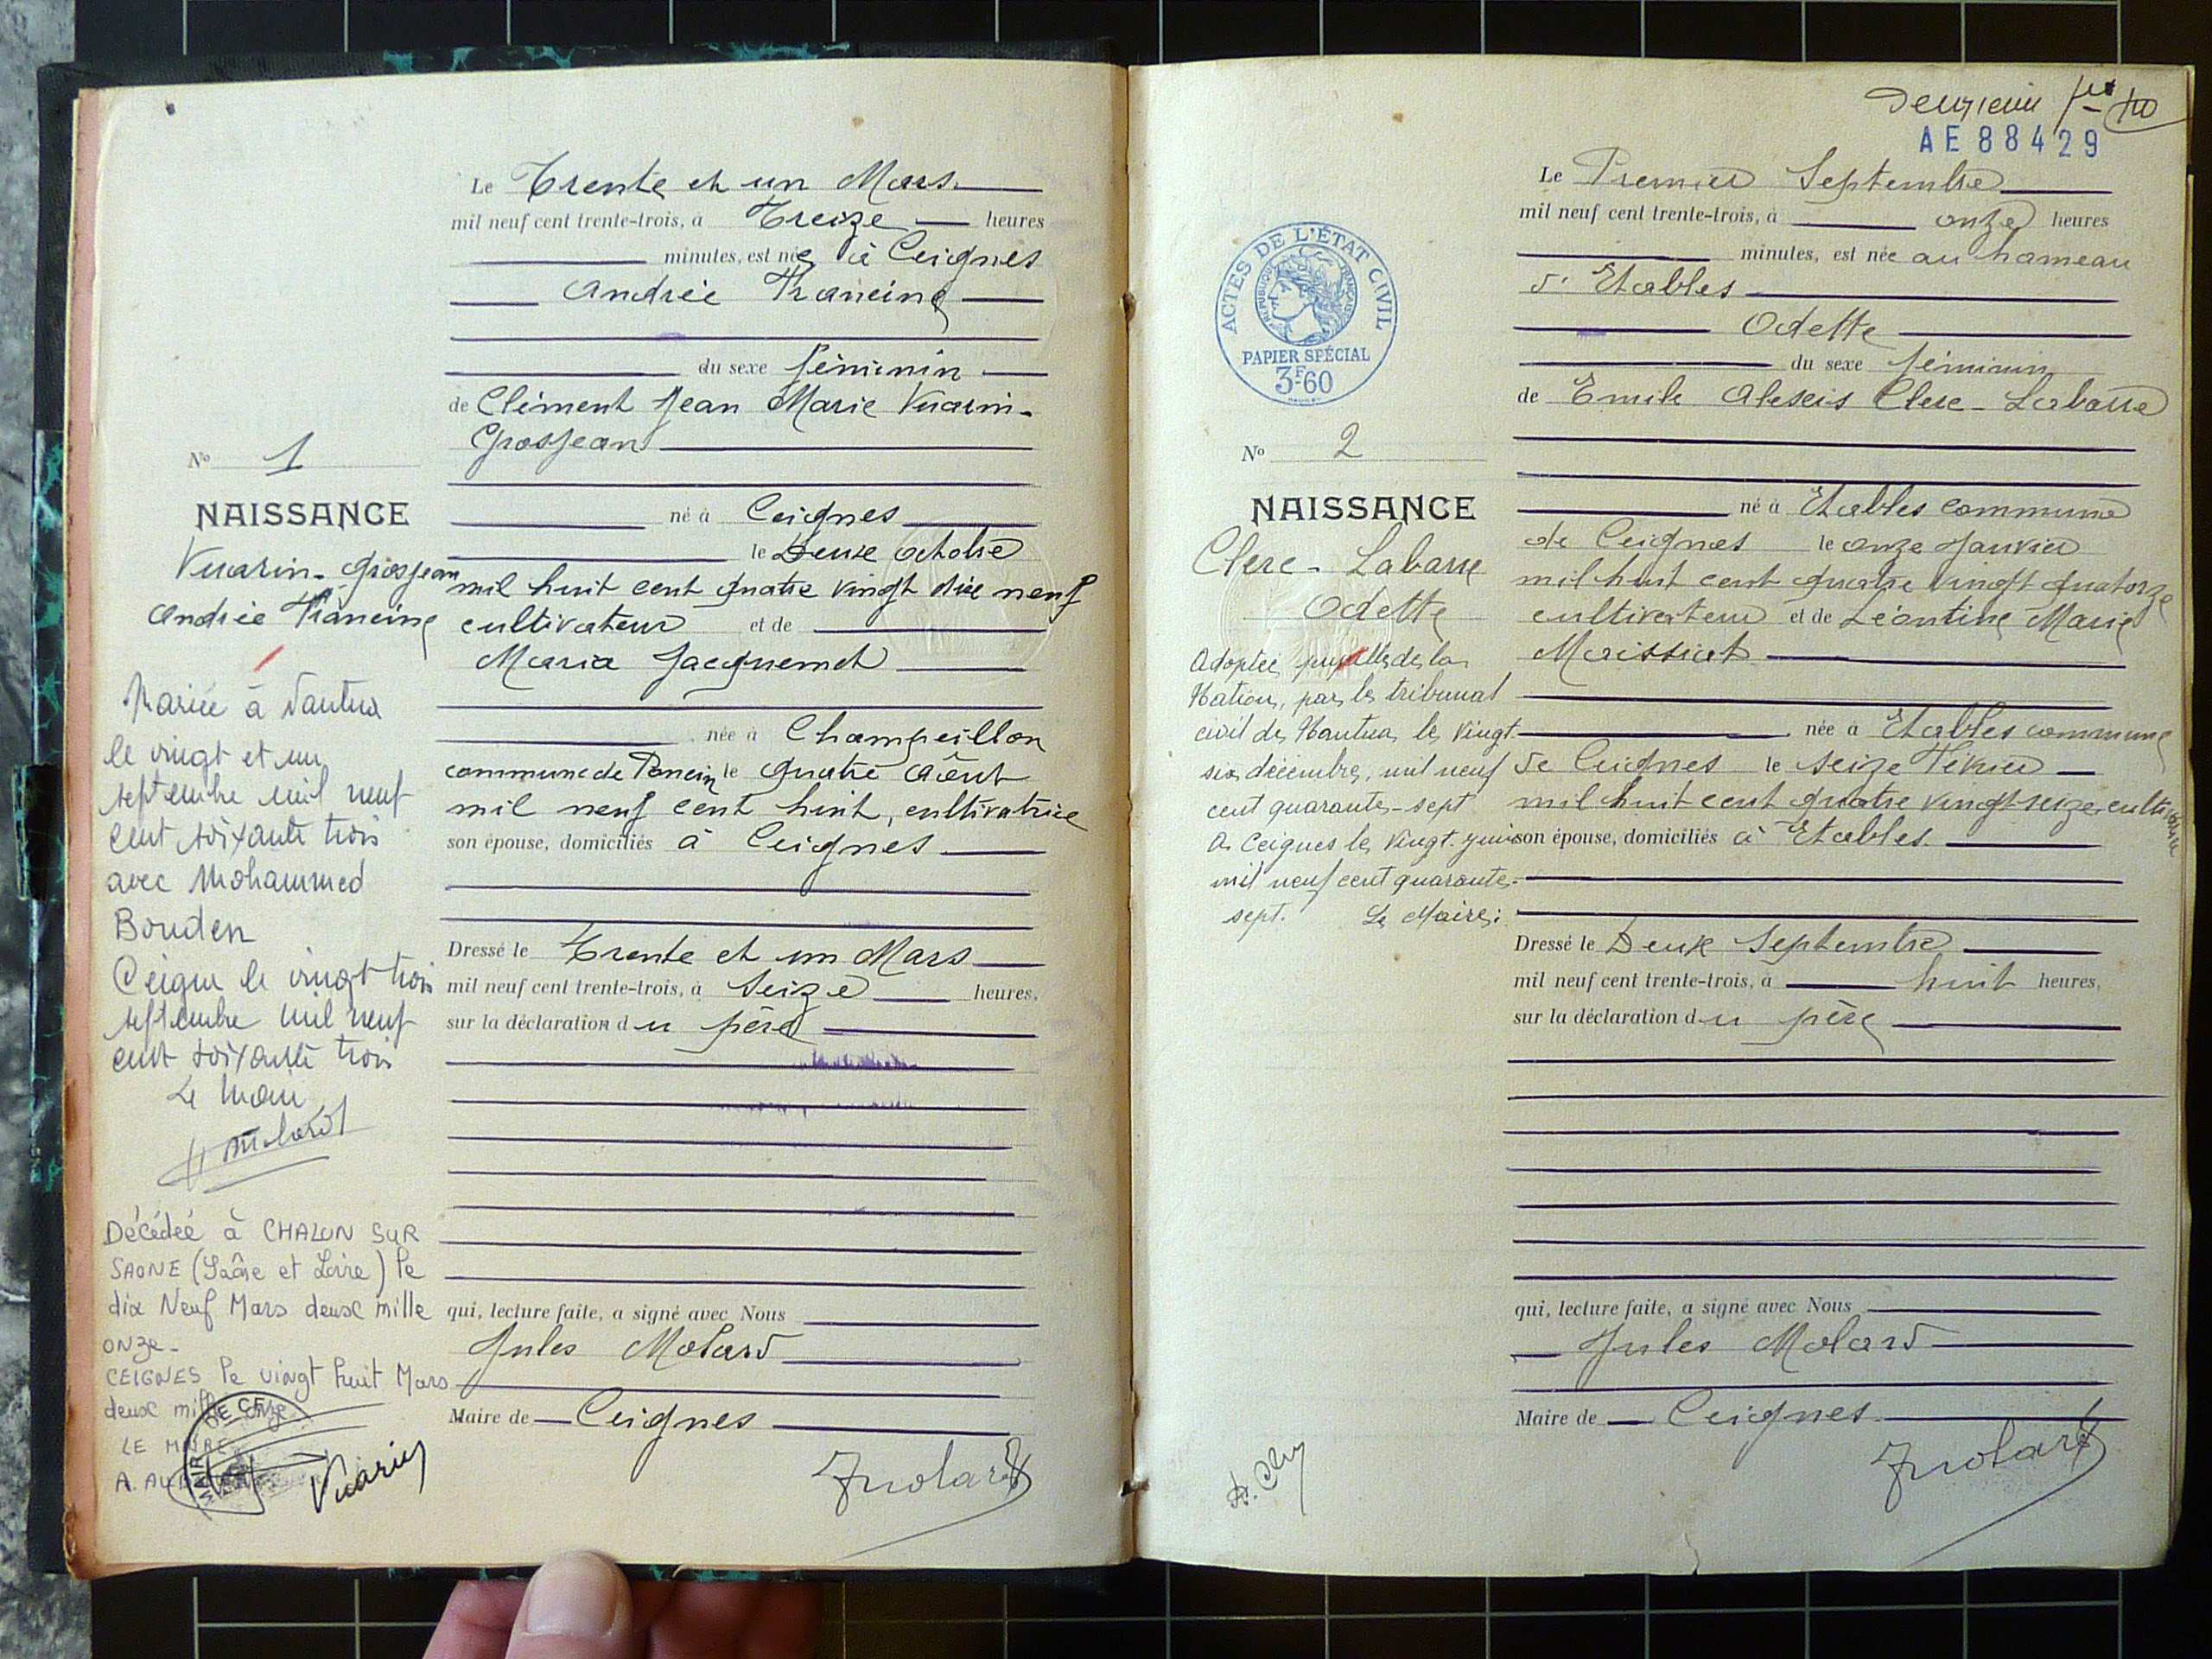 Le Trente et un Mars
mil neuf cent trente-trois, à Treize heures
minutes, est née à Ceignes
Andrée Francine
du sexe féminin
de Clément Jean Marie Vuarin-
Grosjean
né à Ceignes
le Deux Octobre
mil huit cent quatre vingt dix neuf
cultivateur et de
Maria Jacquemet
née à Champeillon
commune de Poncin le quatre Août
mil neuf cent huit, cultivatrice
son épouse, domiciliés à Ceignes
Dressé le Trente et un Mars
mil neuf cent trente-trois, à Seize heures,
sur la déclaration du père
qui, lecture faite, a signé avec Nous
Jules Molard
Maire de Ceignes
Molard
No 1
NAISSANCE
Vuarin-Grosjean
Andrée Francine
Mariée à Nantua
le vingt et un
septembre mil neuf
cent soixante trois
avec Mohammed
Bouden
Ceignes le vingt trois
septembre mil neuf
cent soixante trois
Le Maire
Molard
Décédée à CHALON SUR
SAONE (Saône et Loire) le
dix Neuf Mars deux mille
onze-
CEIGNES le vingt huit Mars
deux mille onze
LE MAIRE
A.
Vuarin
Deuxième
AE 88429
Le Premier Septembre
mil neuf cent trente-trois, à onze heures
minutes, est née au hameau
d'Etables
Odette
du sexe féminin
de Emile Alexis Clerc-Labarre
né à Etables commune
de Ceignes le onze Janvier
mil huit cent quatre vingt quatorze
cultivateur et de Léontine Marie
Morissiat
née à Etables commune
de Ceignes le seize Février
mil huit cent quatre vingt seize cultivatrice
son épouse, domiciliés à Etables
Dressé le Deux Septembre
mil neuf cent trente-trois, à huit heures,
sur la déclaration du père
qui, lecture faite, a signé avec Nous
Jules Molard
Maire de Ceignes
Molard
ACTES DE L'ÉTAT CIVIL
RÉPUBLIQUE FRANÇAISE
PAPIER SPÉCIAL
3F60
No 2
NAISSANCE
Clerc-Labarre
Odette
Adoptée pupille de la
Nation, par le tribunal
civil de Nantua le vingt
six décembre, mil neuf
cent quarante-sept
A Ceignes le vingt
mil neuf cent quarante-
sept. Le Maire: